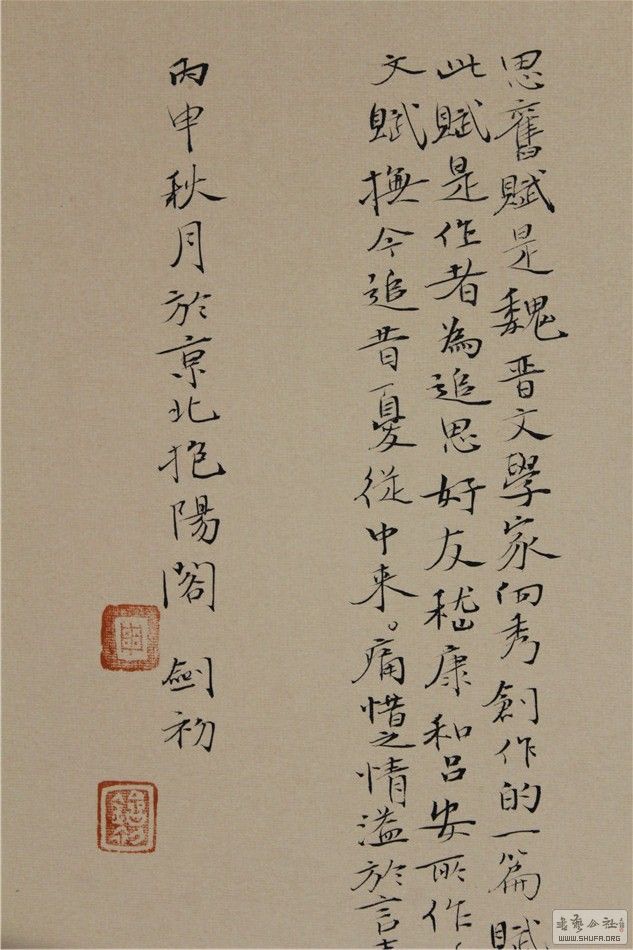 思舊賦是魏晋文學家向秀創作的一篇賦
此賦是作者為追思好友嵇康和吕安所作
文賦撫今追昔憂從中来。痛惜之情溢於言
丙申秋月於京北抱陽阁 劍初
WWW.SHUFA.ORG